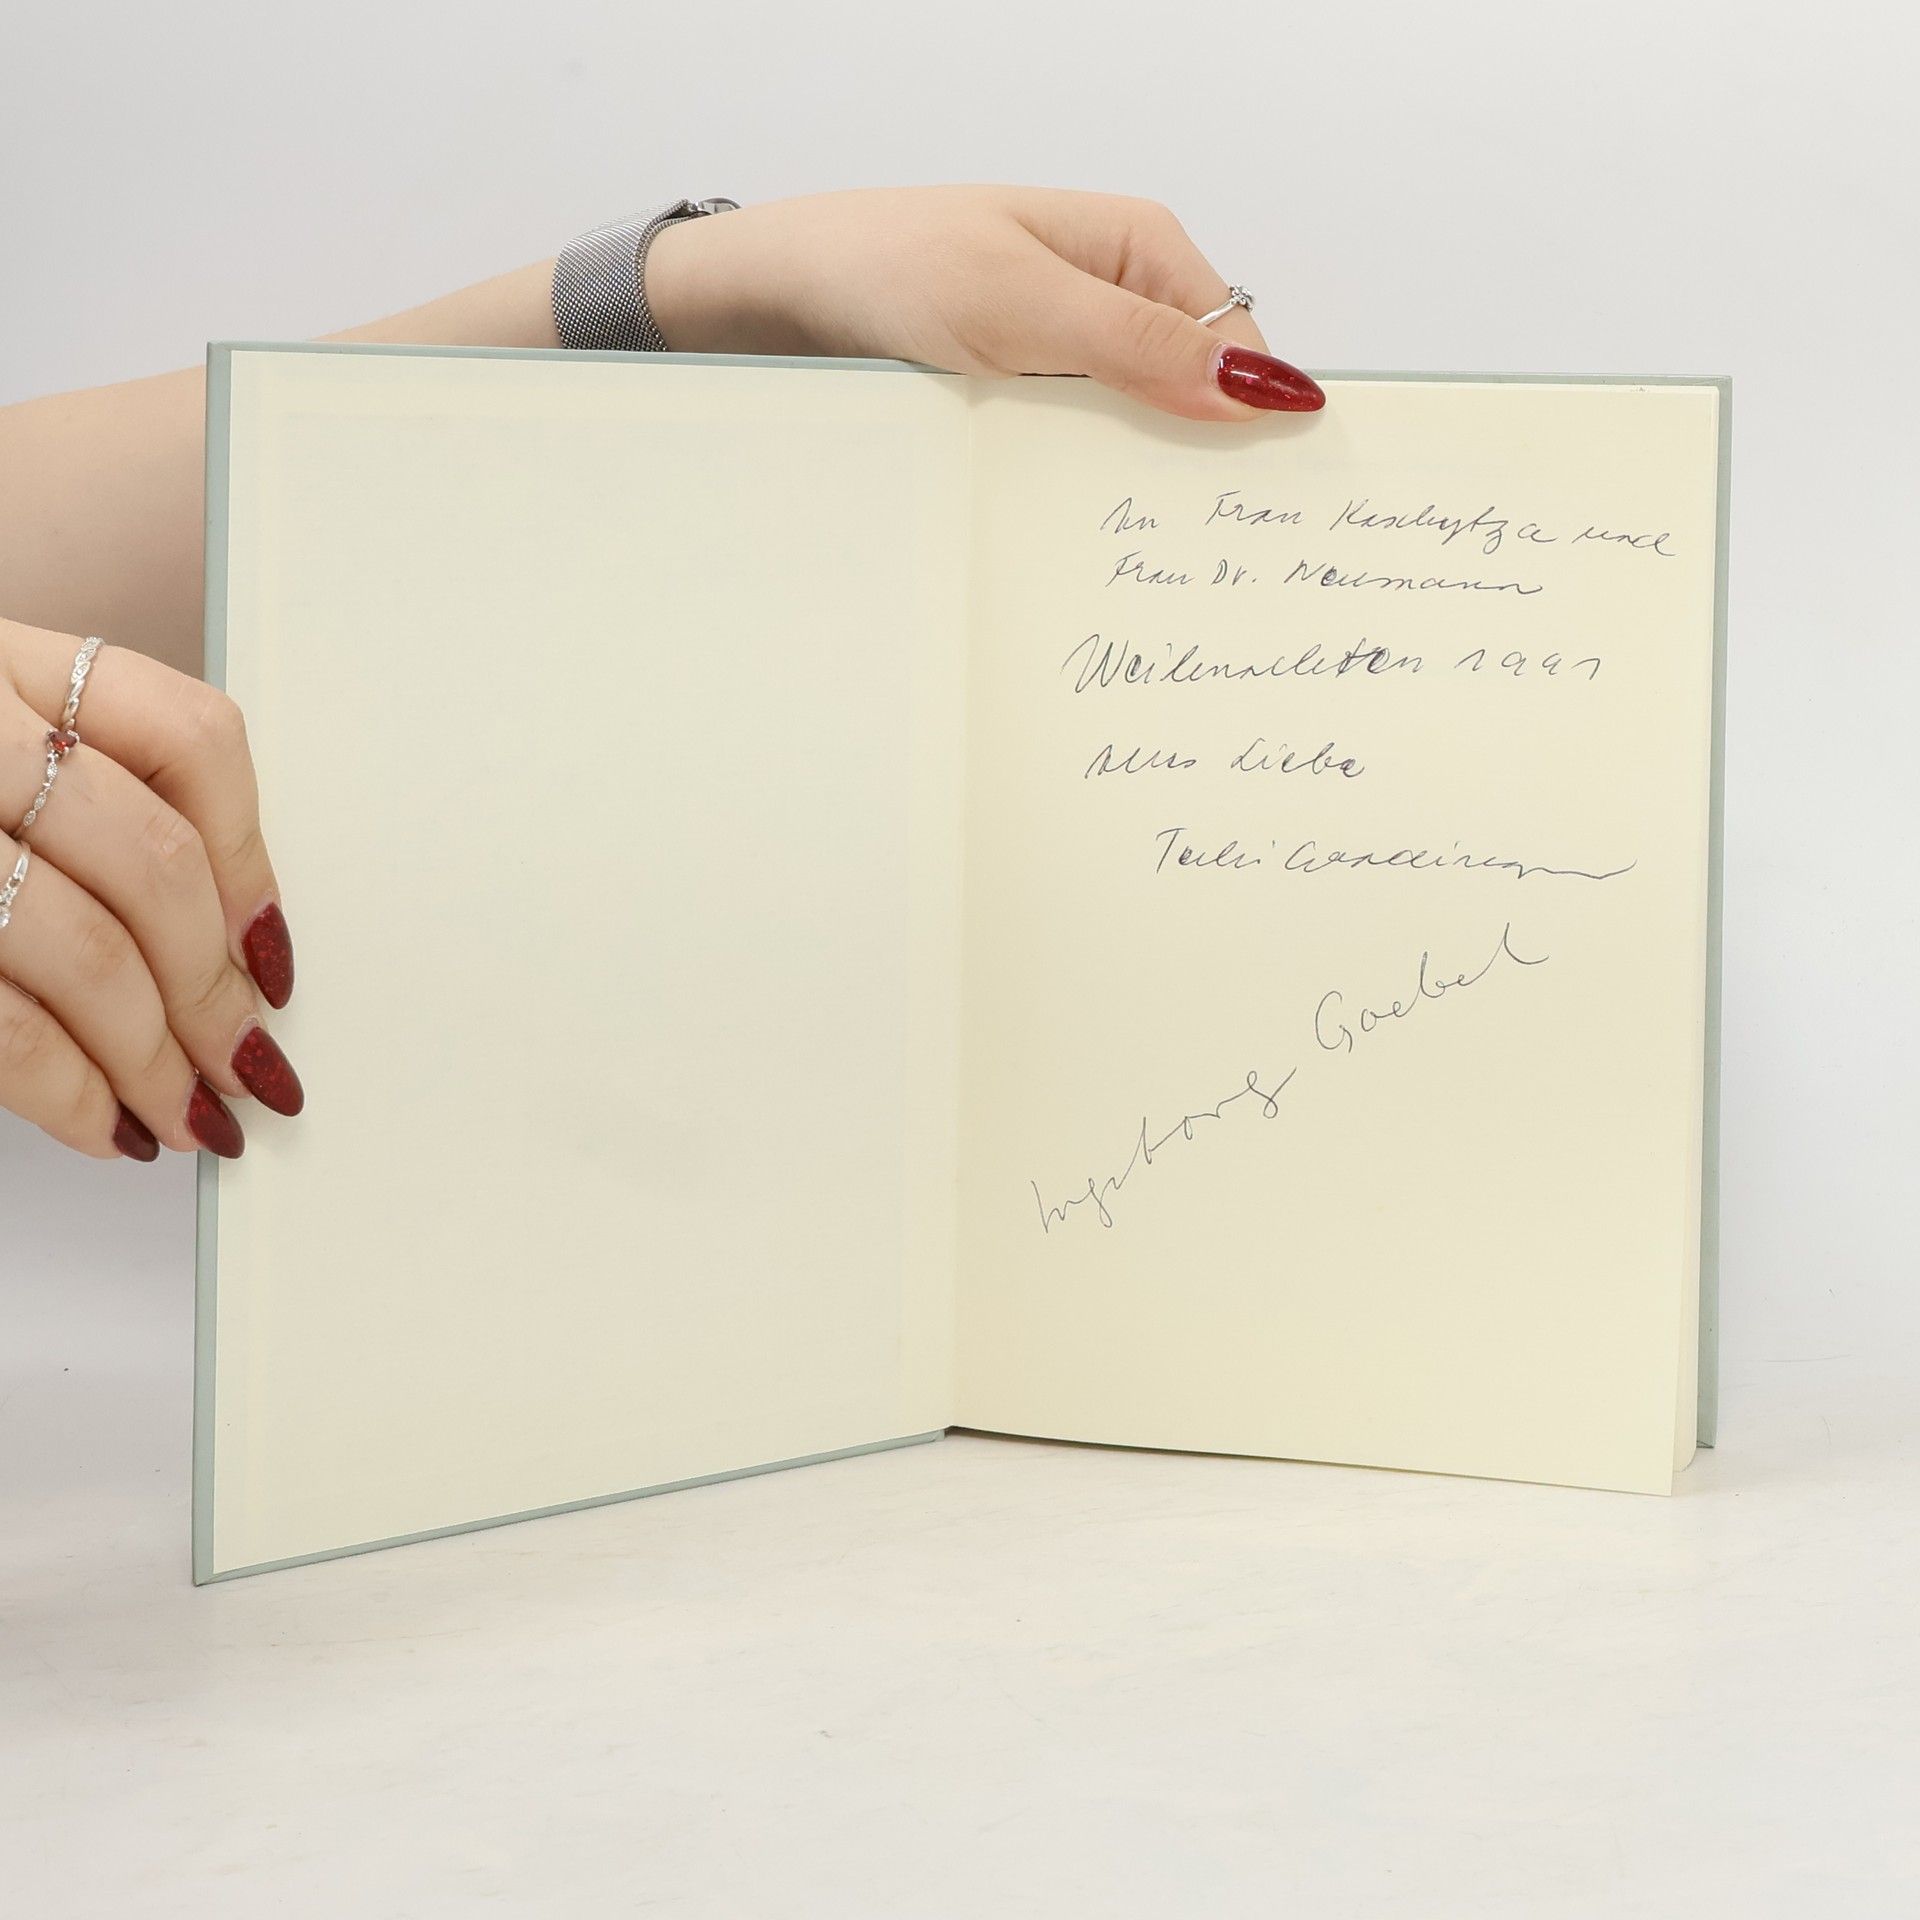 An Frau Kaschytza und
Frau Dr. Neumann
Weihnachten 1991
Aus Liebe
Tuli
Ingeborg Goebel